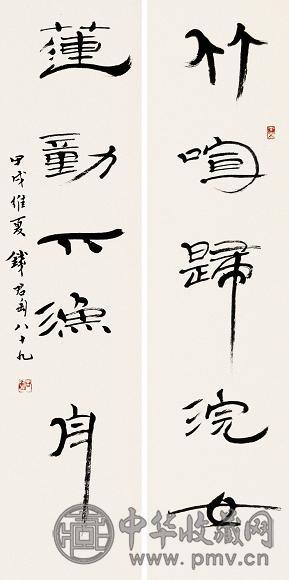 竹喧歸浣女
蓮動下漁舟
甲戌維夏 錢君匋八十九
中华收藏网
www.pmv.cn